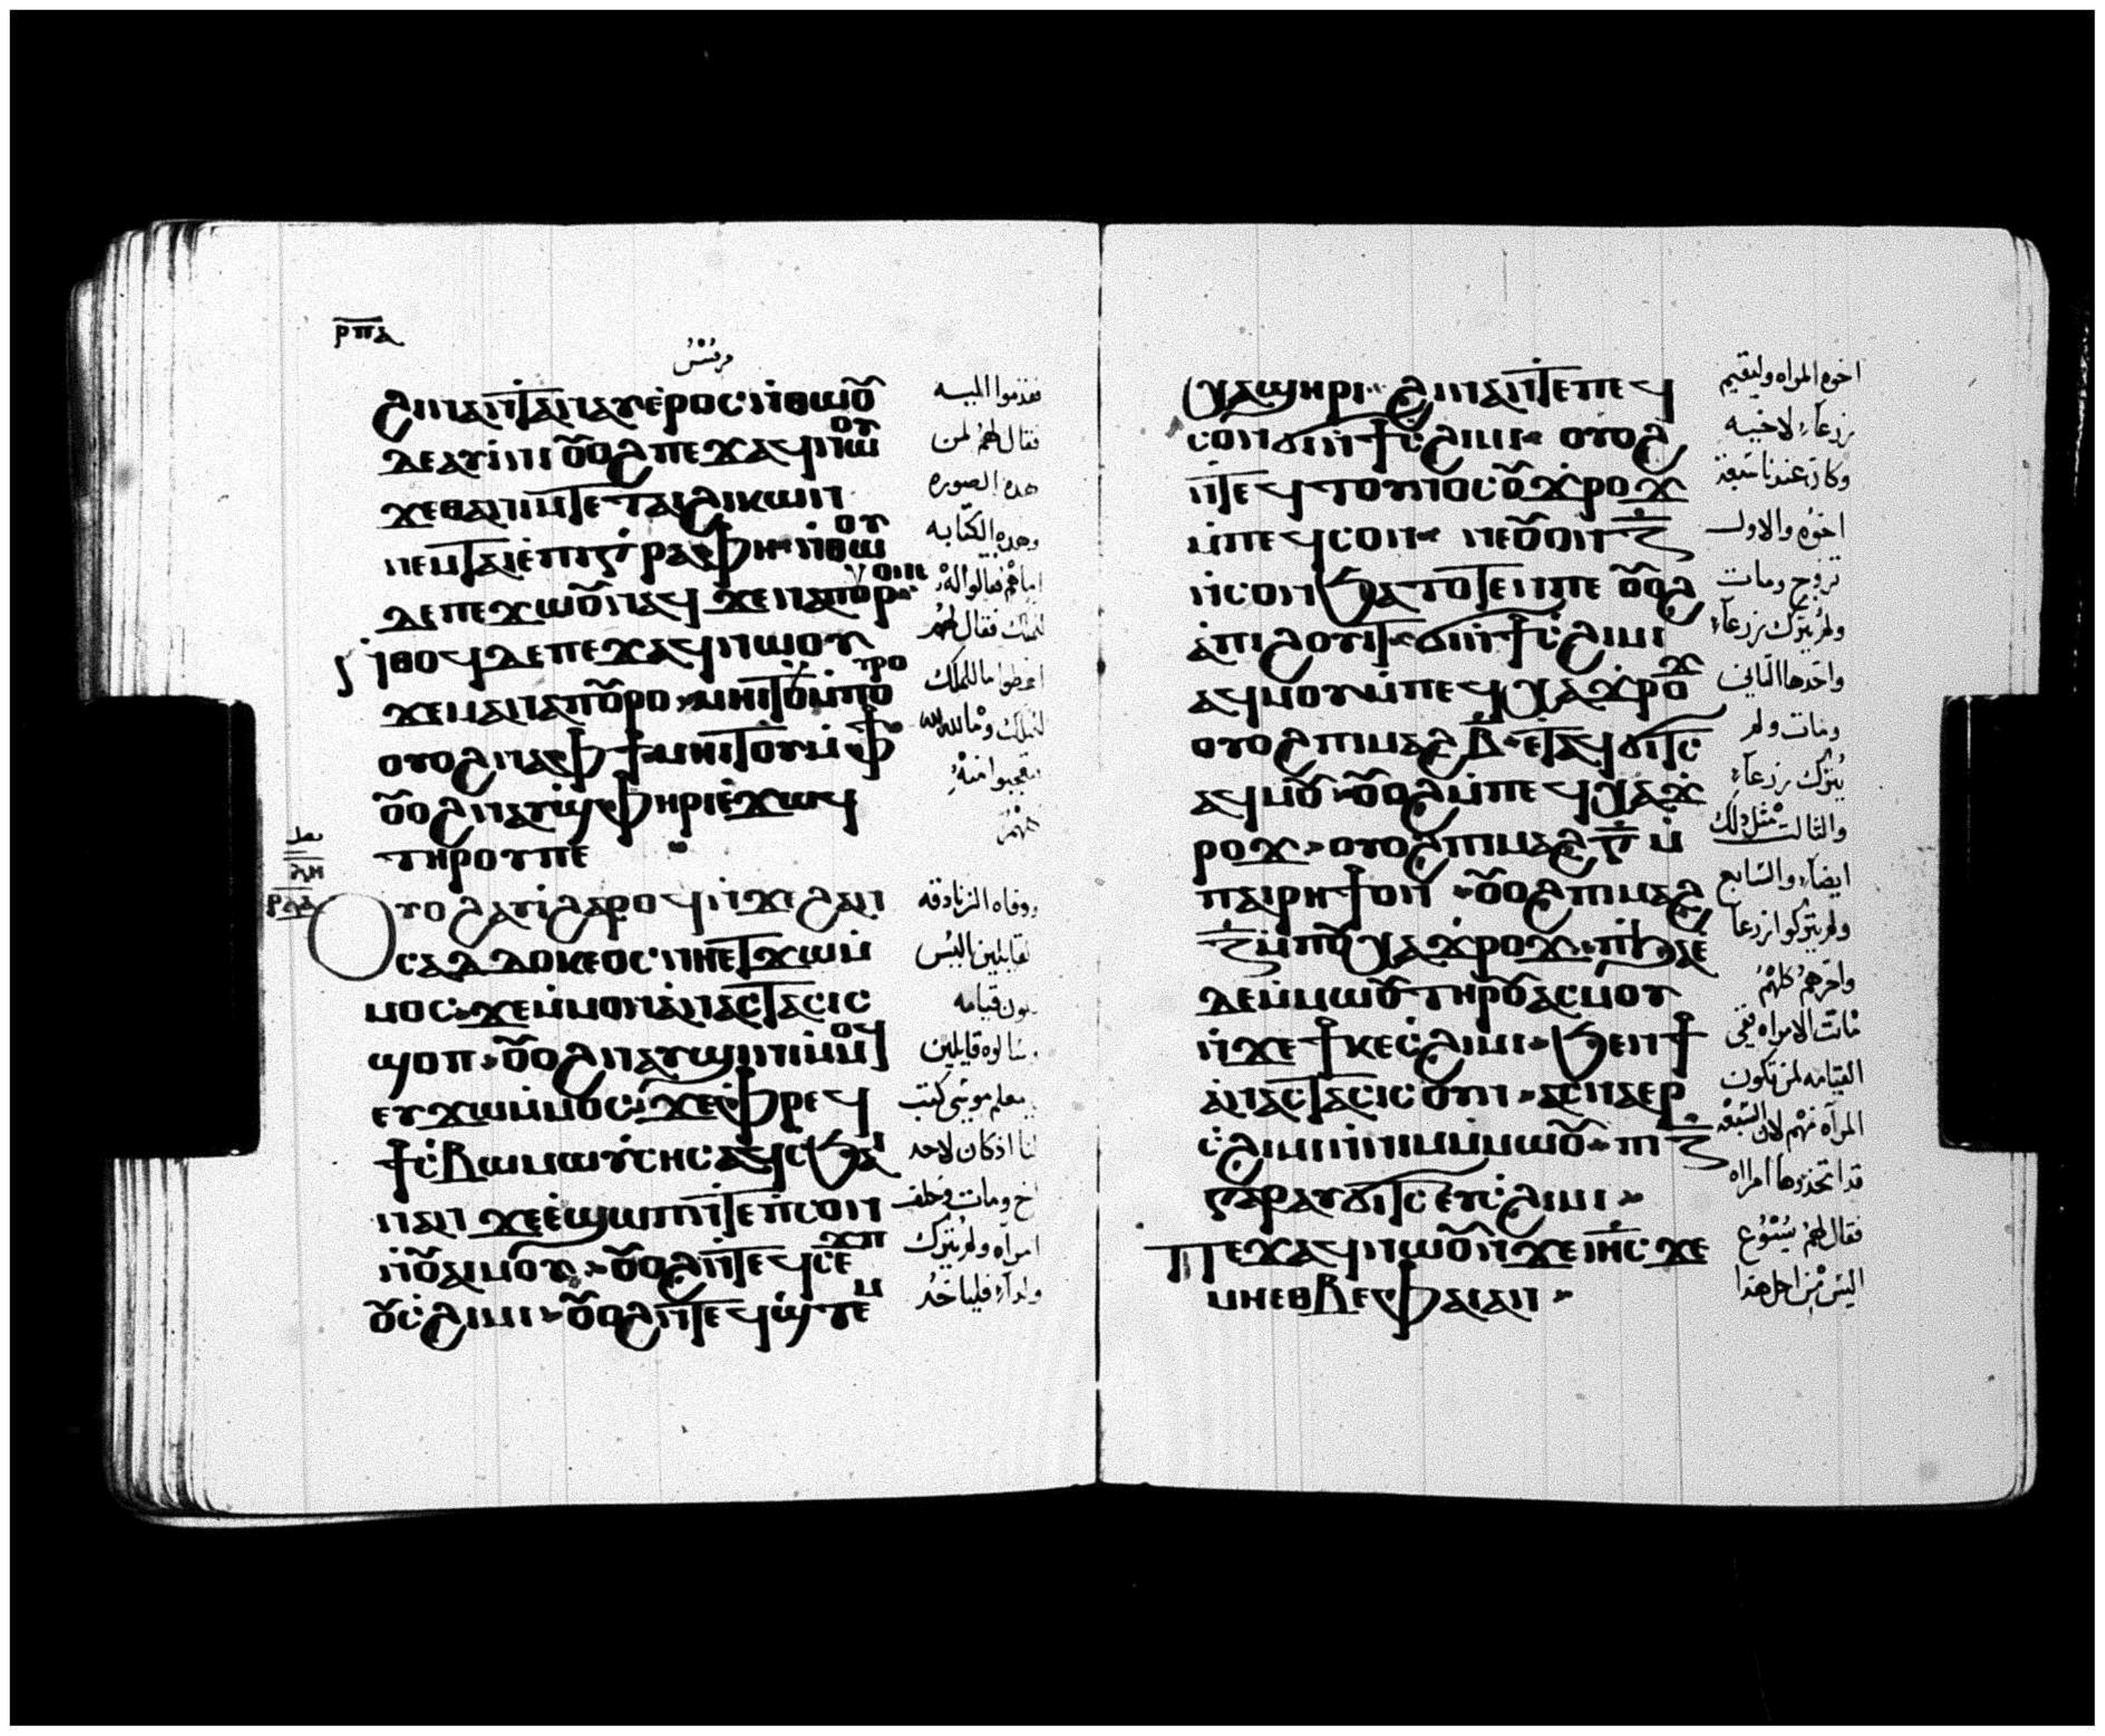 ⲣⲡⲁ
مرقس
ϩⲓⲛⲁⲛⲧⲁⲛⲁⲩⲉⲣⲟⲥ ⲛⲑⲱⲟⲩ
ⲇⲉⲁⲩⲓⲛⲓ ⲟⲩⲟϩ ⲡⲉϫⲁϥ ⲛⲱⲟⲩ
ϫⲉⲑⲁⲛⲓⲙⲧⲉ ⲧⲁⲓϩⲓⲕⲱⲛ
ⲛⲉⲙⲧⲁⲓⲉⲡⲓⲅⲣⲁⲫⲏ ⲛⲑⲱⲟⲩ
ⲇⲉⲡⲉϫⲱⲟⲩⲛⲁϥ ϫⲉⲛⲁⲡⲟⲩⲣⲟ
ⲓⲏⲥ
ⲛⲑⲟϥⲇⲉ ⲡⲉϫⲁϥ ⲛⲱⲟⲩ
ϫⲉⲙⲁⲛⲁⲡⲟⲩⲣⲟ ⲙⲏⲓⲧⲟⲩ ⲙⲡⲟⲩⲣⲟ
ⲟⲩⲟϩ ⲛⲁⲫϯ ⲙⲏⲓⲧⲟⲩ ⲙⲫϯ
ⲟⲩⲟϩ ⲛⲁⲩⲉⲣϣⲫⲏⲣⲓ ⲉϫⲱϥ
ⲧⲏⲣⲟⲩⲡⲉ
ⲟⲩⲟϩ ⲁⲩⲓ ϩⲁⲣⲟϥ ⲛϫⲉϩⲁⲛ
ⲥⲁⲇⲇⲟⲩⲕⲉⲟⲥ ⲛⲏⲉⲧϫⲱⲙ
ⲙⲟⲥ ϫⲉⲙⲙⲟⲛ ⲁⲛⲁⲥⲧⲁⲥⲓⲥ
ϣⲟⲡ ⲟⲩⲟϩ ⲛⲁⲩϣⲓⲛⲓ ⲙⲙⲟϥ
ⲉⲩϫⲱⲙⲙⲟⲥ ϫⲉⲫⲣⲉϥ
ϯⲥⲃⲱ ⲙⲱⲩⲥⲏⲥ ⲁϥⲥϧⲁⲓ
ⲛⲁⲛ ϫⲉⲉϣⲱⲡ ⲛⲧⲉⲡⲥⲟⲛ
ⲛⲟⲩⲁⲓ ⲙⲟⲩ ⲟⲩⲟϩ ⲛⲧⲉϥⲥⲉϫⲡ
ⲟⲩⲥϩⲓⲙⲓ ⲟⲩⲟϩ ⲛⲧⲉϥϣⲧⲉⲙ
فقدموا اليه
فقال لهم لمن
هذه الصوره
وهذه الكتابه
اما هم فقالوا له
للملك فقال لهم
اعطوا ما للملك
للملك وما لله لله
فتعجبوا منه
كلهم
ووفاه الزنادقه
القايلين اليس
يكون قيامه
وسالوه قايلين
يا معلم موسى كتب
لنا اذ كان لاحد
اخ ومات وخلف
امراه ولم يترك
ولدا فلياخد
ⲭⲁϣⲏⲣⲓ ϩⲓⲛⲁ ⲛⲧⲉⲡⲉϥ
ⲥⲟⲛ ϭⲓ ⲛϯⲥϩⲓⲙⲓ ⲟⲩⲟϩ
ⲛⲧⲉϥⲧⲟⲩⲛⲟⲥ ⲟⲩϫⲣⲟϫ
ⲙⲡⲉϥⲥⲟⲛ ⲛⲉⲟⲩⲟⲛ ⲍ
ⲛⲥⲟⲛ ϧⲁⲧⲟⲧⲉⲛⲡⲉ ⲟⲩⲟϩ
ⲁⲡⲓϩⲟⲩⲓⲧ ϭⲓ ⲛϯⲥϩⲓⲙⲓ
ⲁϥⲙⲟⲩ ⲙⲡⲉϥⲭⲁϫⲣⲟϫ
ⲟⲩⲟϩ ⲡⲓⲙⲁϩⲃ ⲉⲧⲁϥϭⲓⲧⲥ
ⲁϥⲙⲟⲩ ⲟⲩⲟϩ ⲙⲡⲉϥⲭⲁϫ
ⲣⲟϫ ⲟⲩⲟϩ ⲡⲓⲙⲁϩⲅ ⲙ
ⲡⲁⲓⲣⲏϯ ⲟⲛ ⲟⲩⲟϩ ⲡⲓⲙⲁϩ
ⲍ ⲙⲡⲟⲩⲭⲁϫⲣⲟϫ ⲡϧⲁⲉ
ⲇⲉⲙⲙⲱⲟⲩ ⲧⲏⲣⲟⲩ ⲁⲥⲙⲟⲩ
ⲛϫⲉϯⲕⲉⲥϩⲓⲙⲓ ϧⲉⲛϯ
ⲁⲛⲁⲥⲧⲁⲥⲓⲥ ⲟⲩⲛ ⲁⲥⲛⲁⲉⲣ
ⲥϩⲓⲙⲓ ⲛⲛⲓⲙ ⲙⲙⲱⲟⲩ ⲡⲓⲍ
ⲅⲁⲣ ⲁⲩϭⲓⲧⲥ ⲉⲩⲥϩⲓⲙⲓ
ⲡⲉϫⲁϥ ⲛⲱⲟⲩ ⲛϫⲉⲓⲏⲥ ϫⲉ
ⲙⲏⲉⲑⲃⲉⲫⲁⲓ ⲁⲛ
اخوه المراه وليقيم
زرعا لاخيه
وكان عندنا سبعه
اخوه والاول
تزوج ومات
ولم يترك زرعا
واخدها الثاني
ومات ولم
يترك زرعا
والثالث مثل ذلك
ايضا والسابع
ولم يتركوا زرعا
واخرهم كلهم
ماتت الامراه ففي
القيامه لمن تكون
المراه منهم لان السبعه
قد اتخذوها امراه
فقال لهم يسوع
اليس من اجل هذا